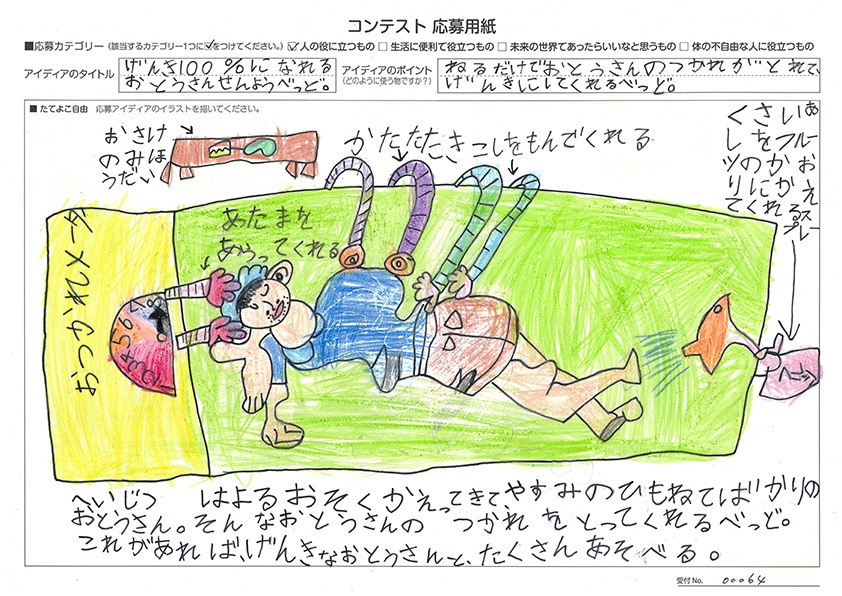 コンテスト 応募用紙
■応募カテゴリー(該当するカテゴリー1つに☑をつけてください。) ☑人の役に立つもの □生活に便利で役立つもの □未来の世界であったらいいなと思うもの □体の不自由な人に役立つもの
アイディアのタイトル
げんき100%になれる
おとうさんせんようべっど。
アイディアのポイント
(どのように使う物ですか?)
ねるだけでおとうさんのつかれがとれて、
げんきにしてくれるべっど。
■たてよこ自由 応募アイディアのイラストを描いてください。
おさけ
のみほ
うだい
かたたたき
こしをもんでくれる
くさいあ
しをフルー
ツのかお
りにかえ
てくれるスプレー
あたまを
あらってくれる
おつかれメータ
へいじつはよるおそくかえってきて、やすみのひもねてばかりの
おとうさん。そんなおとうさんのつかれをとってくれるべっど。
これがあれば、げんきなおとうさんと、たくさんあそべる。
受付No. 00064